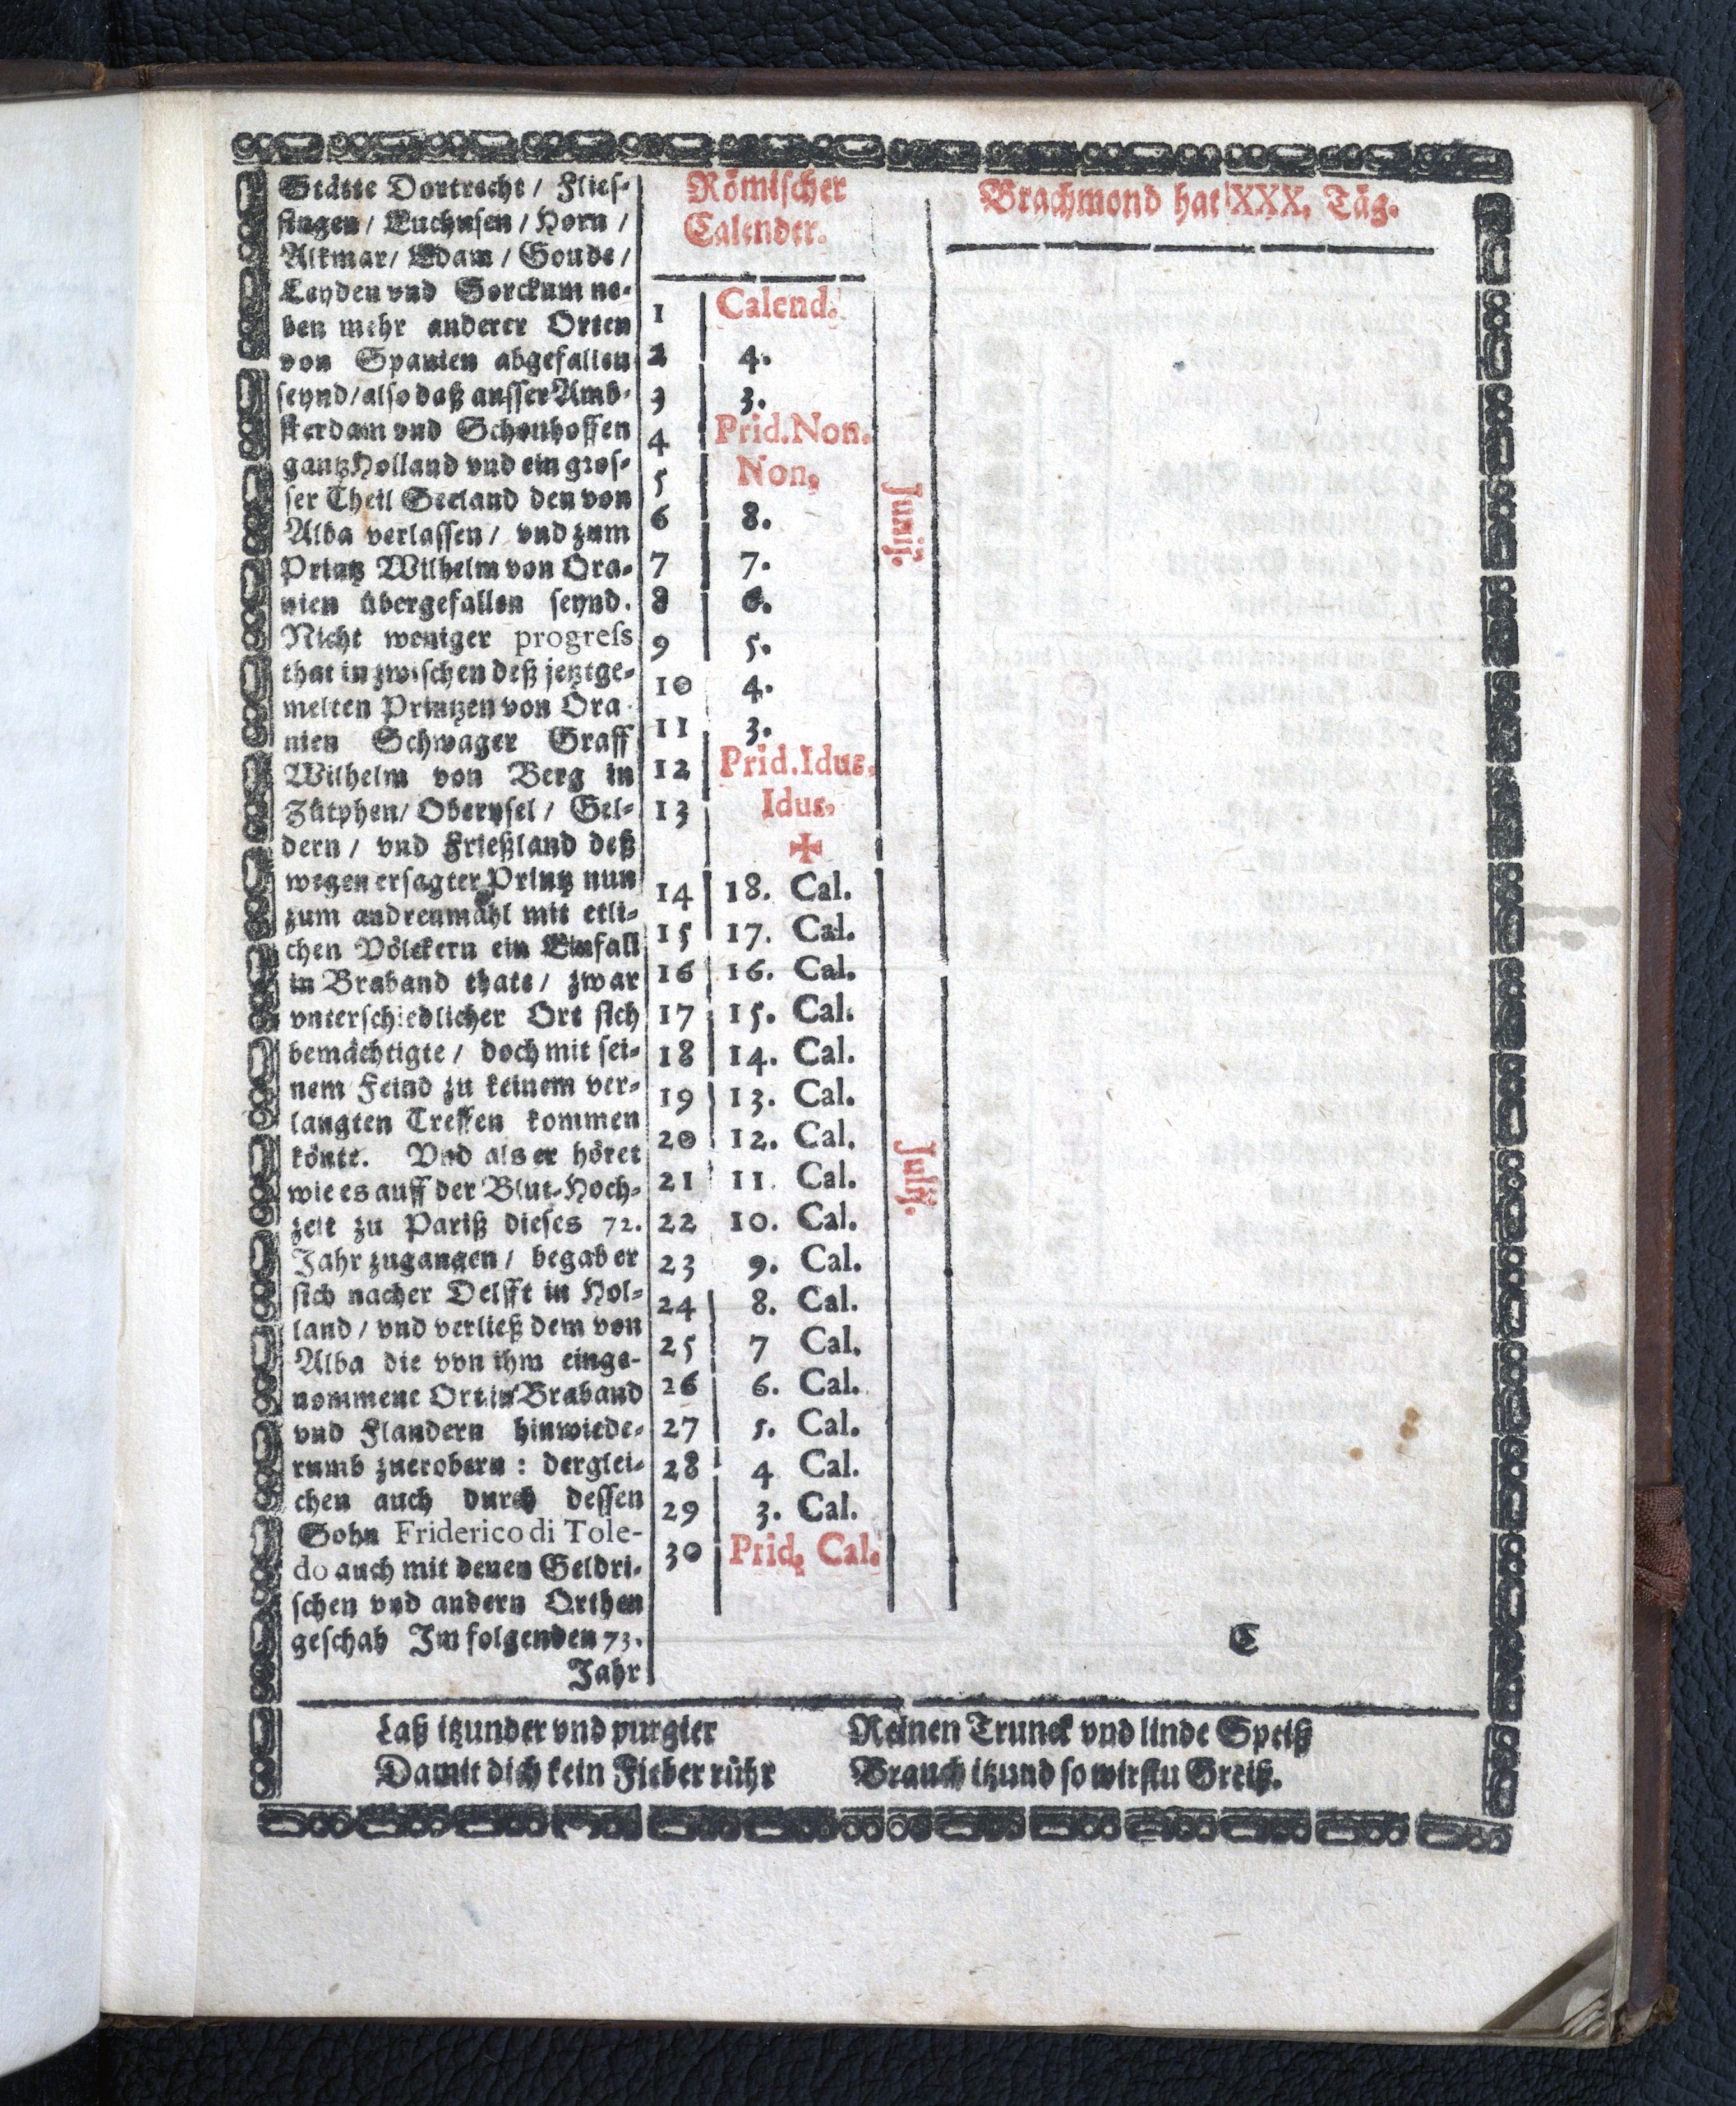 Stätte Dortrecht / Flies-
singen / Enchusen / Horn /
Alkmar / Edam / Goude /
Leyden vnd Gorckum ne-
ben mehr anderer Orten
von Spanien abgefallen
seynd / also daß ausser Amb-
sterdam vnd Schonhoffen
gantz Holland vnd ein gros-
ser Theil Seeland den von
Alba verlassen / vnd zum
Printz Wilhelm von Ora-
nien übergefallen seynd.
Nicht weniger progress
that inzwischen deß jetztge-
melten Printzen von Ora-
nien Schwager Graff
Wilhelm von Berg in
Zütphen / Oberysel / Gel-
dern / vnd Frießland deß
wegen ersagter Printz nun
zum andrenmahl mit etli-
chen Völckern ein Einfall
in Braband thate / zwar
vnterschiedlicher Ort sich
bemächtigte / doch mit sei-
nem Feind zu keinem ver-
langten Treffen kommen
könte. Vnd als er höret
wie es auff der Blut-Hoch-
zeit zu Pariß dieses 72.
Jahr zugangen / begab er
sich nacher Delfft in Hol-
land / vnd verließ dem von
Alba die von ihm einge-
nommene Ort in Braband
vnd Flandern hinwiede-
rumb zuerobern : derglei-
chen auch durch dessen
Sohn Friderico di Tole-
do auch mit denen Geldri-
schen vnd andern Orthen
geschah Im folgenden 73.
Jahr
Römischer
Calender.
1 Calend.
2 4.
3 3.
4 Prid. Non.
5 Non.
6 8.
7 7.
8 6.
9 5.
10 4.
11 3.
12 Prid. Idus.
13 Idus.
✠
14 18. Cal.
15 17. Cal.
16 16. Cal.
17 15. Cal.
18 14. Cal.
19 13. Cal.
20 12. Cal.
21 11. Cal.
22 10. Cal.
23 9. Cal.
24 8. Cal.
25 7 Cal.
26 6. Cal.
27 5. Cal.
28 4 Cal.
29 3. Cal.
30 Prid. Cal.
Junij.
Julij.
Brachmond hat XXX. Täg.
C
Laß itzunder vnd purgier
Damit dich kein Fieber rühr
Reinen Trunck vnd linde Speiß
Brauch itzund so wirstu Greiß.